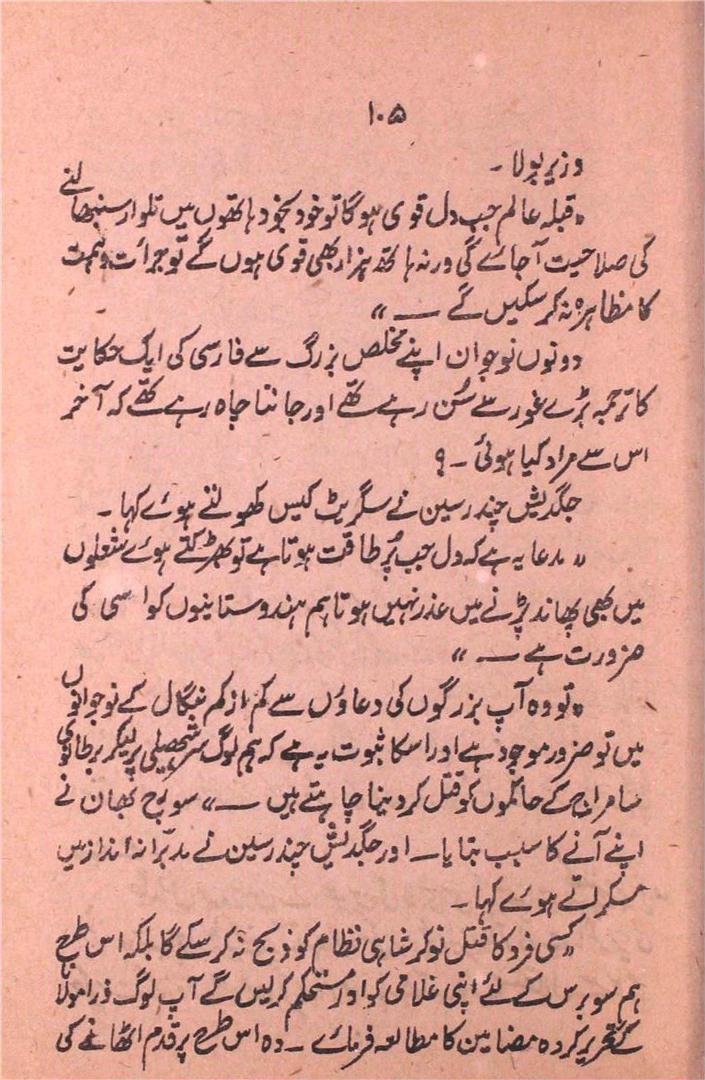 ۱۰۵
وزیر بولا ۔
"قبلہ عالم جب دل قوی ہوگا تو خود بخود ہاتھوں میں تلوار سنبھالنے
کی صلاحیت آجائے گی ورنہ ہاتھ ہزار بھی قوی ہوں گے تو جرائت و ہمت
کا مظاہرہ نہ کرسکیں گے ــــ"
دونوں نوجوان اپنے مخلص بزرگ سے فارسی کی ایک حکایت
کا ترجمہ بڑے غور سے سُن رہے تھے اور جاننا چاہ رہے تھے کہ آخر
اس سے مراد کیا ہوئی ۔ ؟
جگدیش چندر سین نے سگریٹ کیس کھولتے ہوئے کہا ۔
"مدعا یہ ہے کہ دل جب پُر طاقت ہوتا ہے تو بھڑکتے ہوئے شعلوں
میں بھی پھاند پڑنے میں عذر نہیں ہوتا ہم ہندوستانیوں کو اسی کی
ضرورت ہے ــــ"
"تو وہ آپ بزرگوں کی دعاؤں سے کم از کم بنگال کے نوجوانوں
میں تو ضرور موجود ہے اور اسکا ثبوت یہ ہے کہ ہم لوگ سر ہتھیلی پر لیکر برطانوی
سامراج کے حاکموں کو قتل کردینا چاہتے ہیں ــــ" سوبح بھان نے
اپنے آنے کا سبب بتایا ــ اور جگدیش چندر سین نے مدبّرانہ انداز میں
مسکراتے ہوئے کہا ۔
"کسی فرد کا قتل نوکر شاہی نظام کو ذبح نہ کرسکے گا بلکہ اس طرح
ہم سو برس کے لئے اپنی غلامی کو اور مستحکم کرلیں گے آپ لوگ ذرا مولانا
کے تحریر کردہ مضامین کا مطالعہ فرمائے ۔ وہ اس طرح پر قدم اٹھانے کی